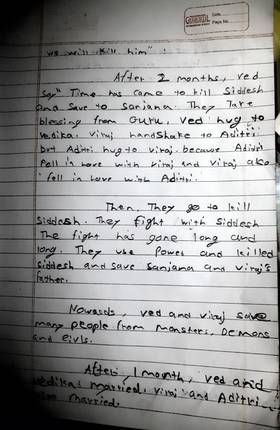 Date
Page No.
we will kill him".
After 2 months, ved
say" Time has came to kill Siddesh
and save to sanjana. They Take
blessing from Guru, ved hug to
vedika. Viraj handshake to Aditri
but Aditri hug to viraj. because Aditri
fell in love with viraj and viraj also
fell in love with Aditri.
Then, They go to kill
Siddesh. They fight with Siddesh
The fight has gone long and
long. They use power and killed
siddesh and save sanjana and viraj's
father.
Nowards, ved and viraj save
many people from monsters, Demons
and eivls.
After 1 month, ved and
vedika married. viraj and Aditri
married.